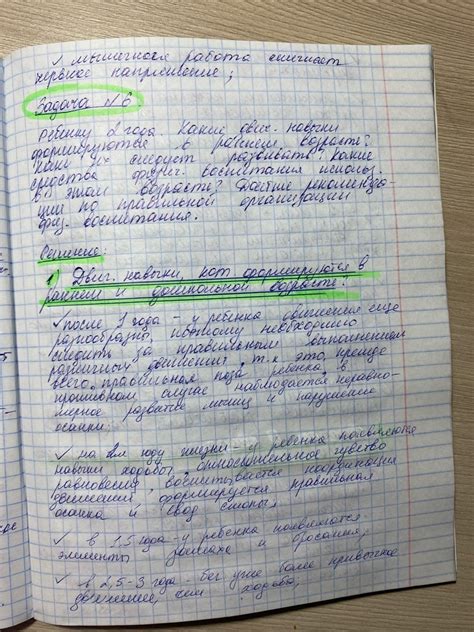 ✓ мышечная работа снижает
нервное напряжение;
Задача №6
Ребёнку 2 года. Какие двиг. навыки
формируются в раннем возрасте?
Как их следует развивать? Какие
средства физич. воспитания использ.
в этом возрасте? Дайте рекоменда-
ции по правильной организации
физ. воспитания.
Решение:
1) Двиг. навыки, кот формируются в
раннем и дошкольной возрасте:
✓ после 1 года - у ребёнка движения ещё
разнообразно, поэтому необходимо
следить за правильным исполнением
различных движений, т.к. это, прежде
всего, правильная поза ребёнка, в
противном случае наблюдается неравно-
мерное развитие мышц и нарушение
осанки;
✓ на 2м году жизни - у ребёнка появляются
навыки ходьбы, относительное чувство
равновесия, воспитывается координация
движений, формируется правильная
осанка и свод стопы;
✓ в 1,5 года - у ребёнка появляются
элементы и бросания;
✓ в 2,5-3 года - бег уже более привычное
движение, чем ходьба;